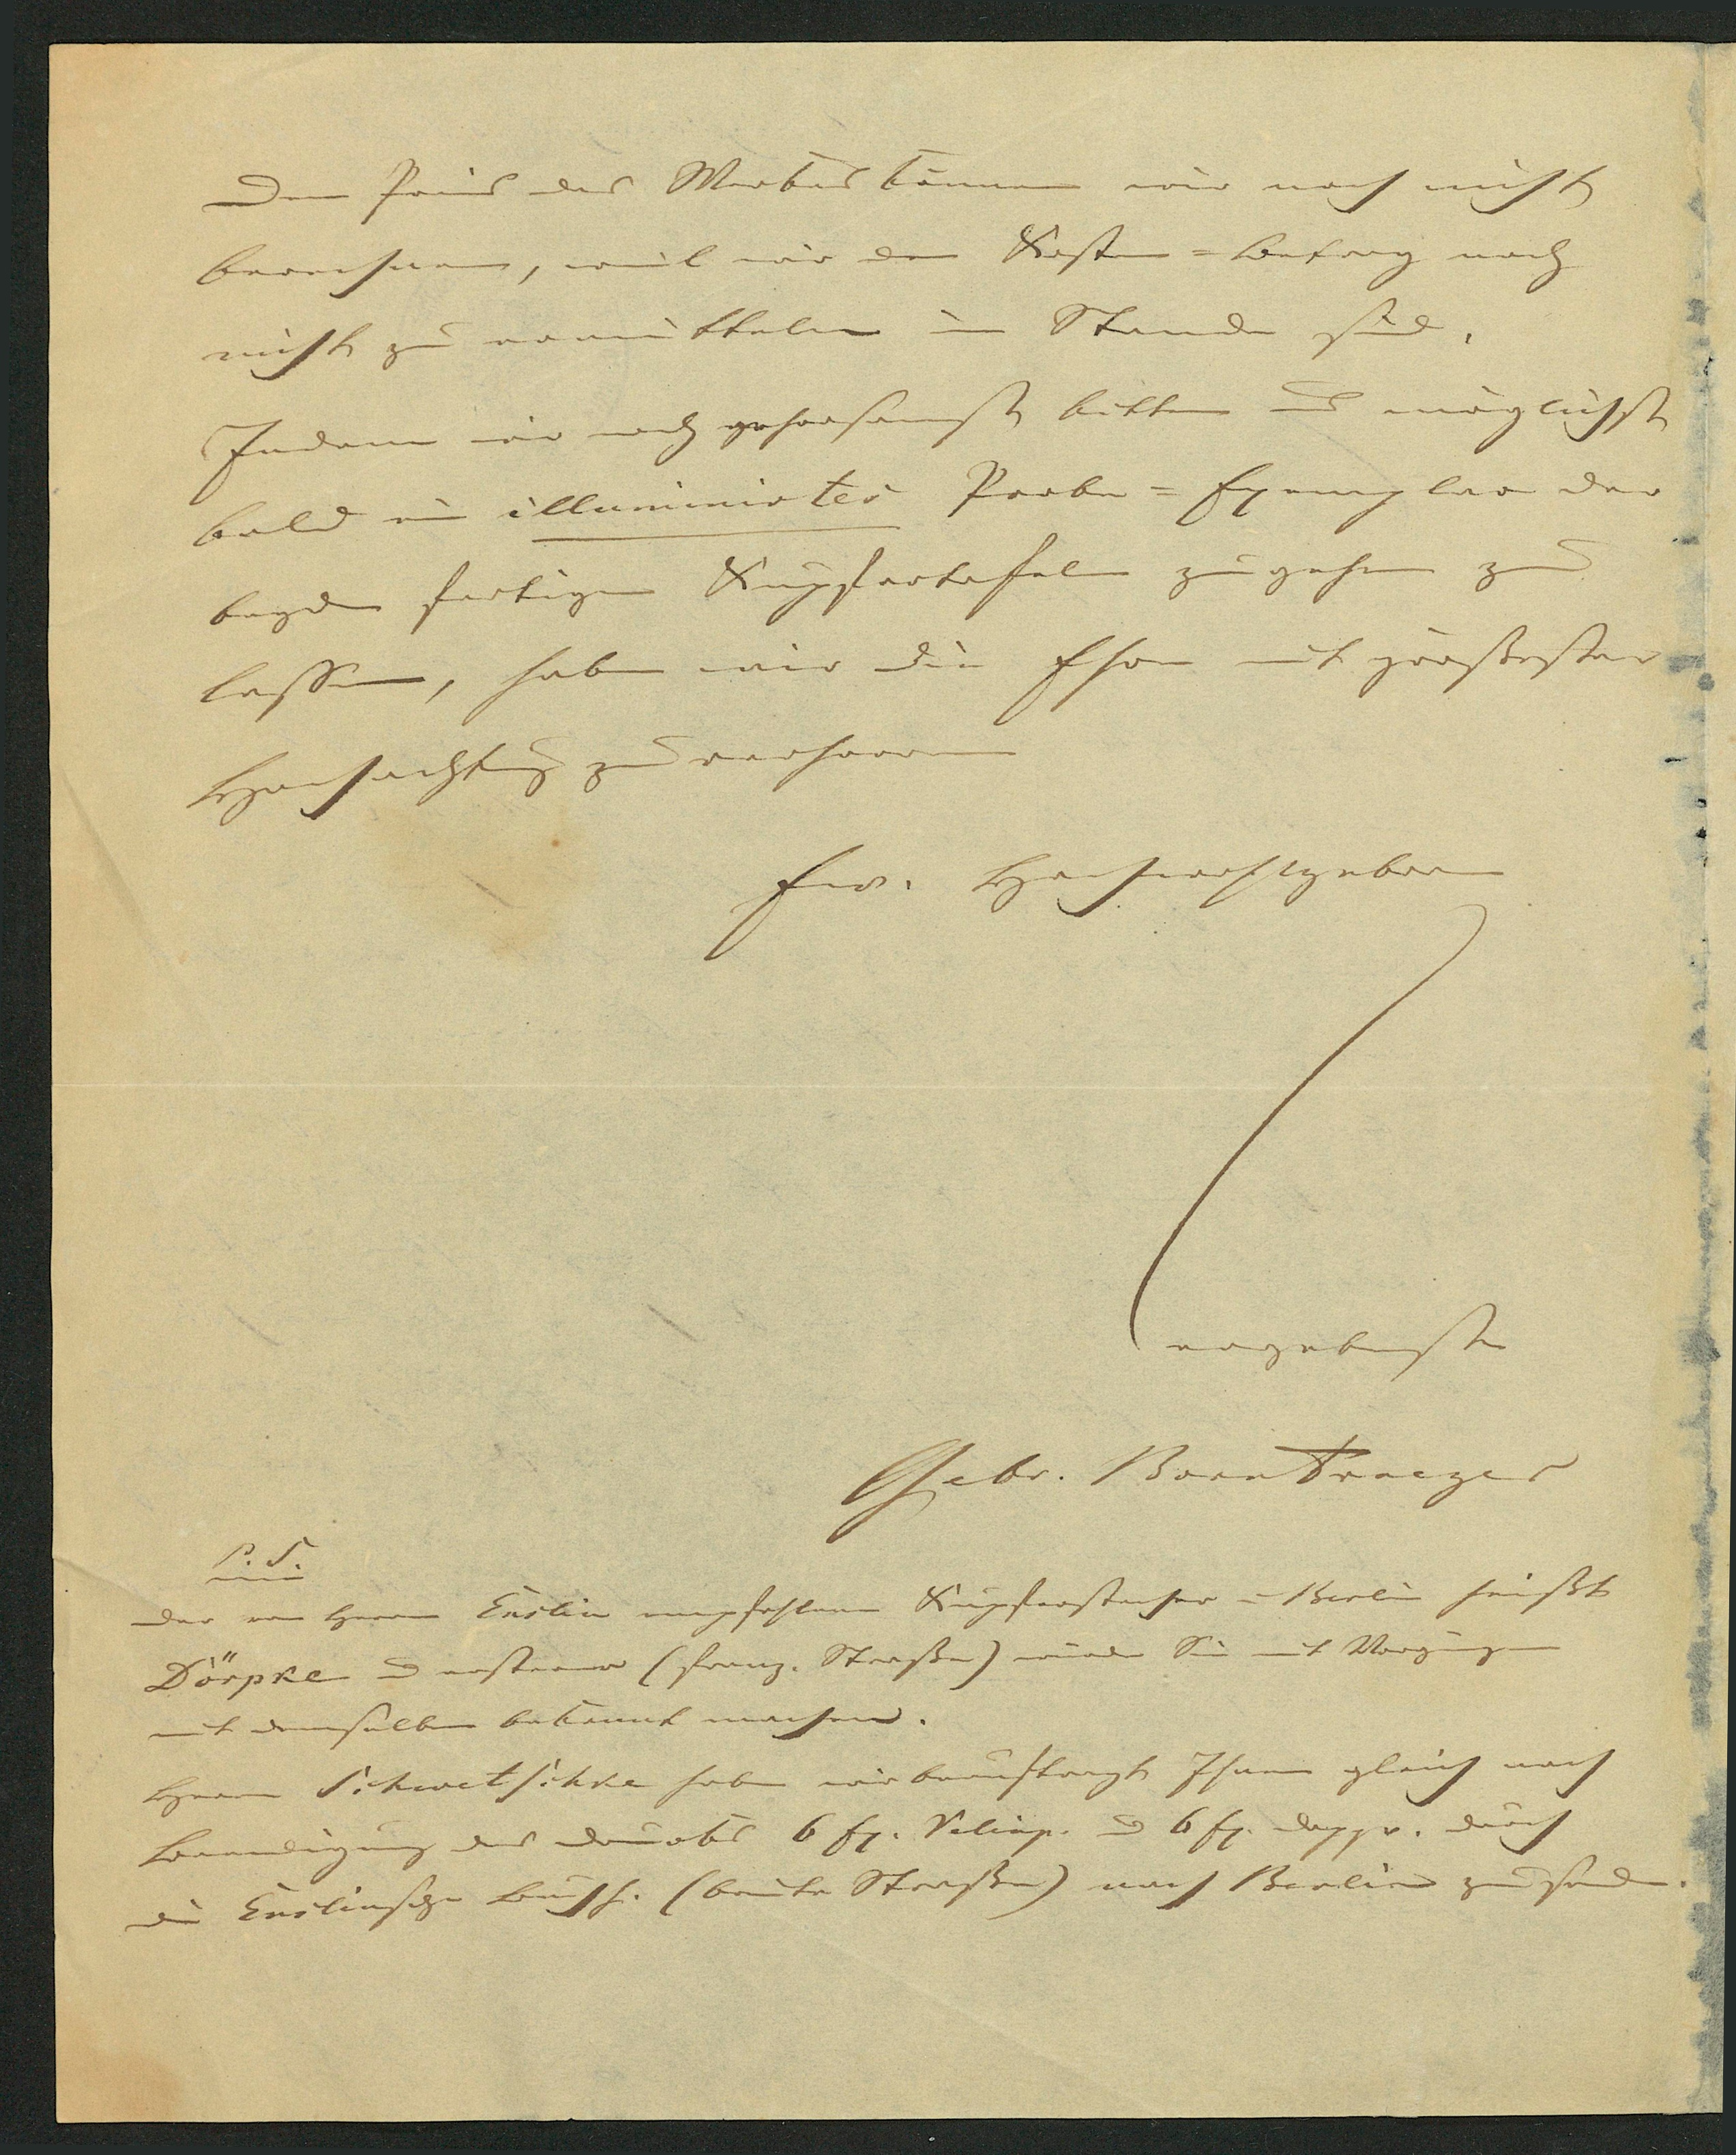 Den Preis des Werkes können wir noch nicht
berechnen, weil wir den Kosten=Betrag noch
nicht zu ermitteln im Stande sind.
Indem wir noch gehorsamst bitten uns möglichst
bald ein illuminirtes Probe=Exemplar der
beyden fertigen Kupfertafeln zugehen zu
lassen, haben wir die Ehre mit größester
Hochachtung zu verharren
Ew. Hochwohlgeboren
ergebenste
Gebr. Borntraeger
P. S.
Der von Herrn Enslin empfohlene Kupferstecher in Berlin heißt
Dörpke u (franz. Straße) würde Sie mit Vergnügen
mit demselben bekannt machen.
Herrn Schwetschke haben wir beauftragt Ihnen gleich nach
Beendigung des Drucks 6 Ex. Velinp. u 6 Ex. Druckpp. durch
die Enslinsche Buchh. (breite Straße) nach Berlin zu senden.